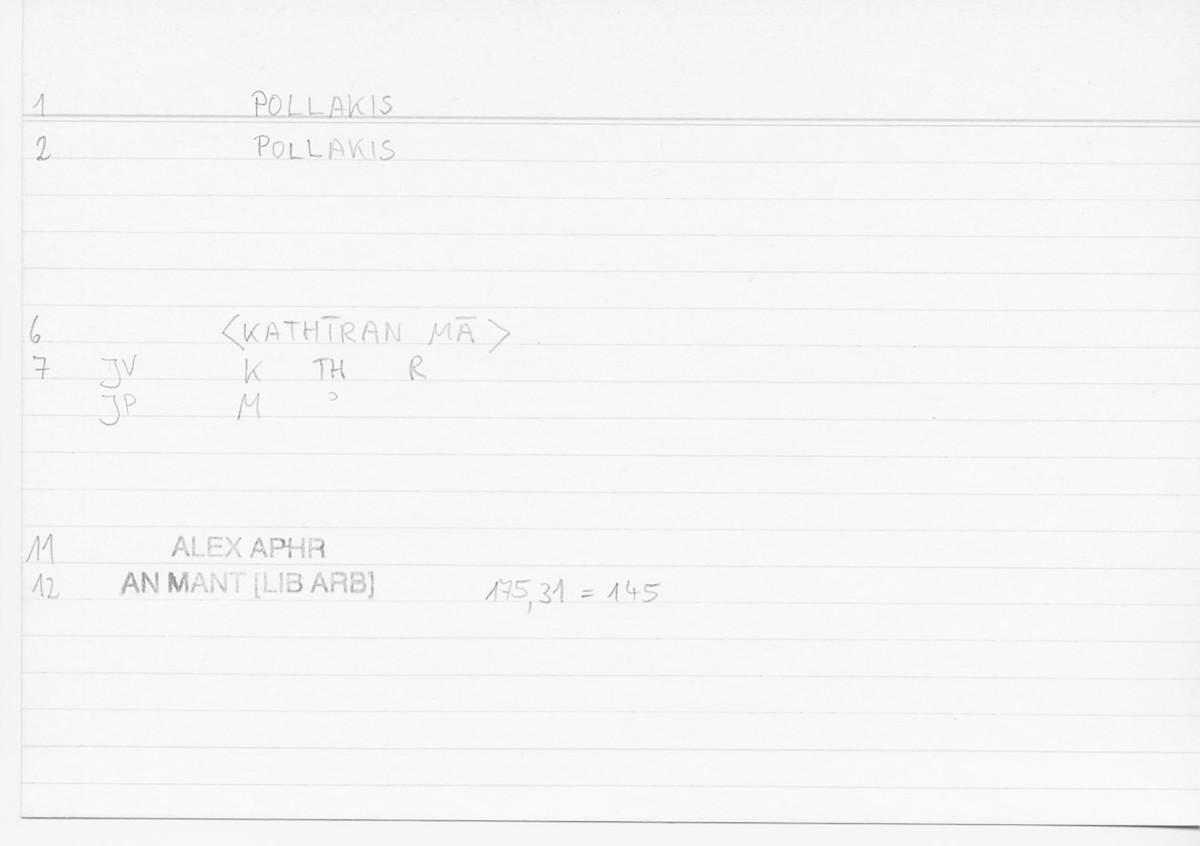 1 POLLAKIS
2 POLLAKIS
6 <KATHĪRAN MĀ>
7 JV K TH R
JP M ʾ
11 ALEX APHR
12 AN MANT [LIB ARB] 175,31 = 145